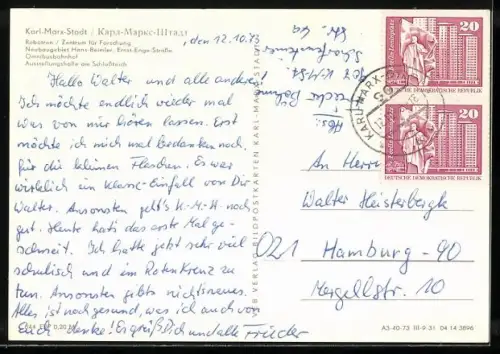 Karl-Marx-Stadt / Карл-Маркс-Штадт
Robotron / Zentrum für Forschung
Neubaugebiet Hans-Beimler, Ernst-Enge-Straße
Omnibusbahnhof
Ausstellungshalle am Schloßteich
, den 12.10.73
Hallo Walter und alle anderen!
Ich möchte endlich wieder mal
was von mir hören lassen. Erst
möchte ich mich mal bedanken noch
für die kleinen Flaschen. Es war
wirklich ein Klasse-Einfall von Dir
Walter. Ansonsten geht's K.-M.-St. noch
gut. Heute hat's das erste Mal ge-
schneit. Ich hatte jetzt sehr viel
schulisch und im Roten Kreuz zu
tun. Ansonsten gibts nichts neues.
Alles ist noch gesund, was ich auch von
Euch denke! Es grüßt Dich und alle
BILD VERLAG BILDPOSTKARTEN KARL-MARX-STADT
Abs:
KARL-MARX-
20
DEUTSCHE DEMOKRATISCHE REPUBLIK
20
DEUTSCHE DEMOKRATISCHE REPUBLIK
An Herrn
Walter Heisterbergk
021 Hamburg-90
Mergellstr. 10
0,20 M
A3-40-73 III-9-31 04 14 3896